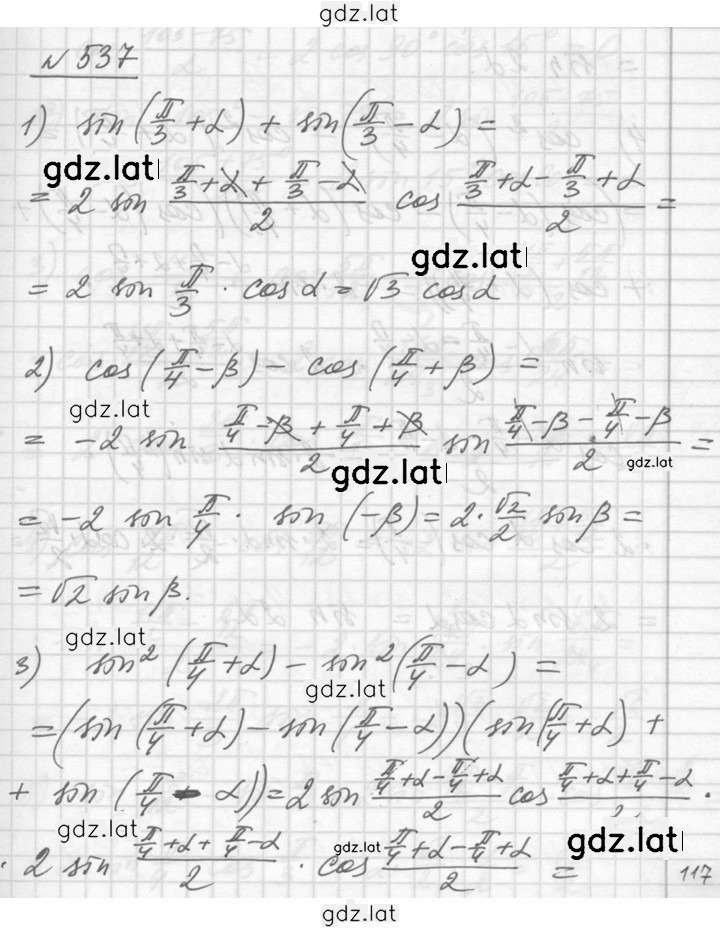 gdz.lat
№ 537
1) sin(π/3 + α) + sin(π/3 − α) =
gdz.lat
= 2 sin (π/3 + α + π/3 − α)/2 cos (π/3 + α − π/3 + α)/2 =
gdz.lat
= 2 sin π/3 · cos α = √3 cos α
2) cos(π/4 − β) − cos(π/4 + β) =
gdz.lat
= −2 sin (π/4 − β + π/4 + β)/2 sin (π/4 − β − π/4 − β)/2 =
gdz.lat
gdz.lat
= −2 sin π/4 · sin(−β) = 2 · √2/2 sin β =
= √2 sin β.
gdz.lat
3) sin²(π/4 + α) − sin²(π/4 − α) =
gdz.lat
= (sin(π/4 + α) − sin(π/4 − α))(sin(π/4 + α) +
+ sin(π/4 − α)) = 2 sin (π/4 + α − π/4 + α)/2 cos (π/4 + α + π/4 − α)/2 ·
gdz.lat
gdz.lat
gdz.lat
· 2 sin (π/4 + α + π/4 − α)/2 · cos (π/4 + α − π/4 + α)/2 =
117
gdz.lat